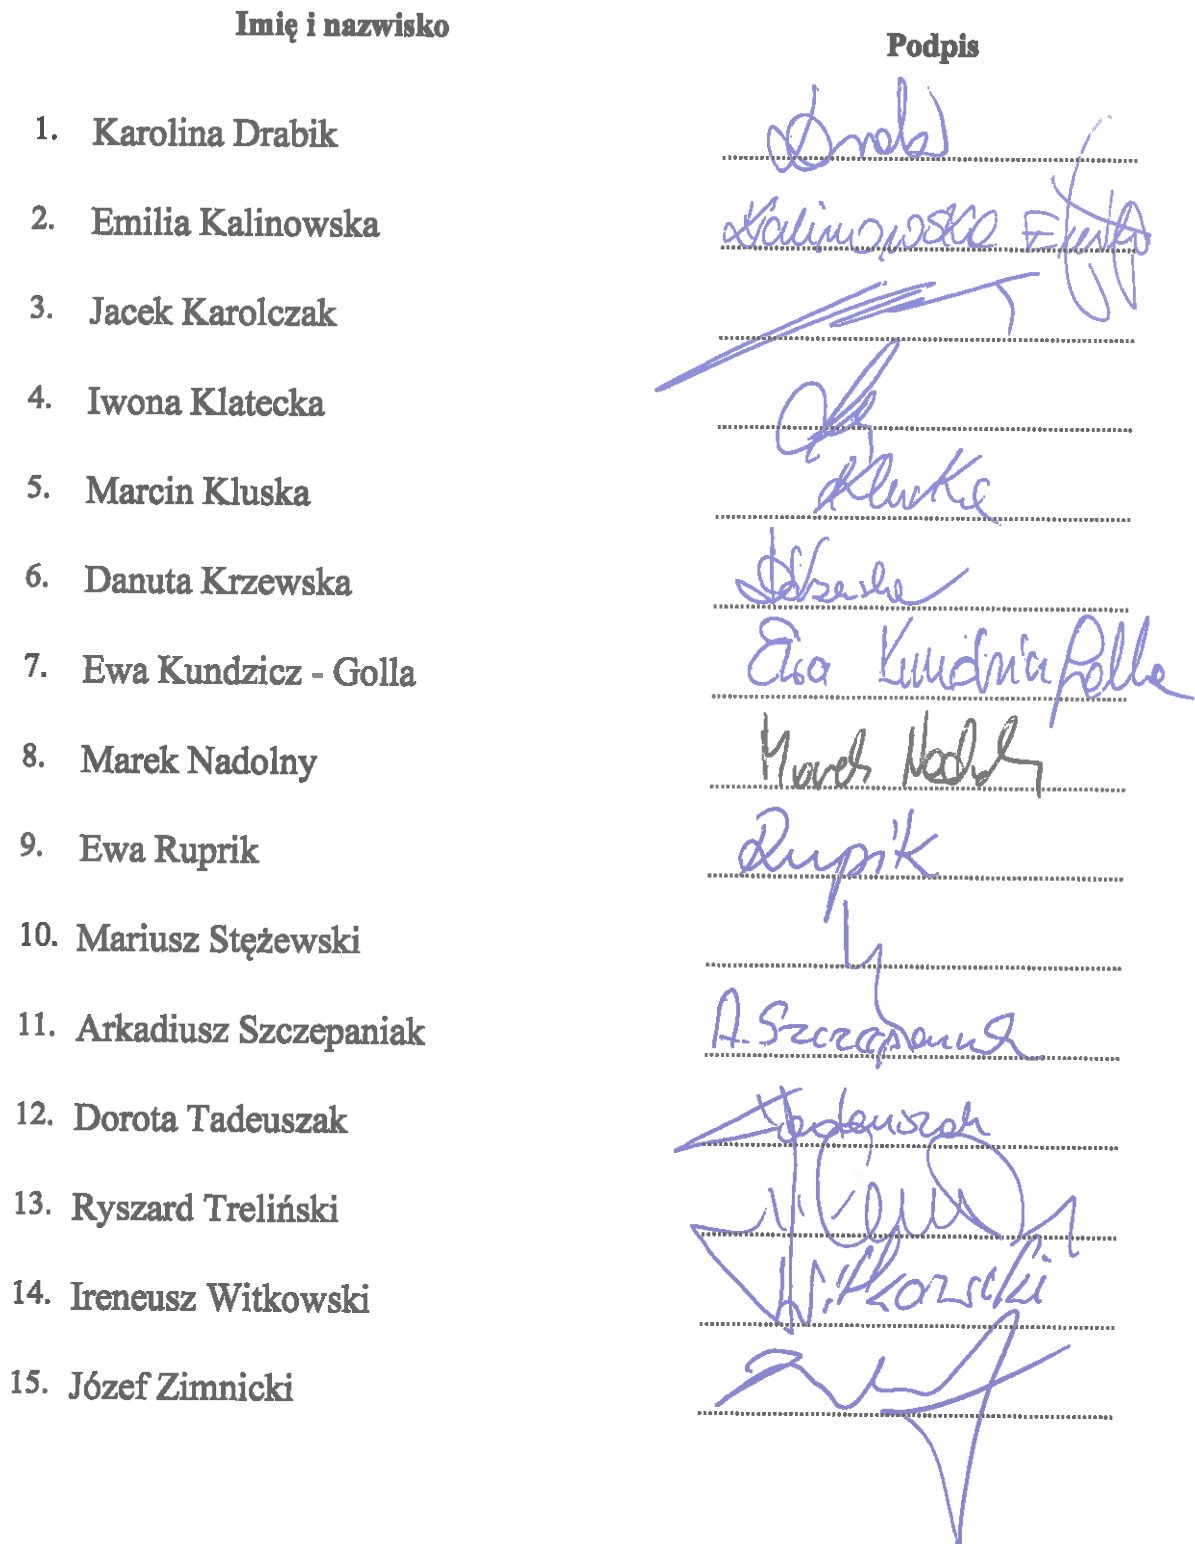 Imię i nazwisko Podpis
1. Karolina Drabik
2. Emilia Kalinowska Kalinowska Emilia
3. Jacek Karolczak
4. Iwona Klatecka
5. Marcin Kluska Kluska
6. Danuta Krzewska
7. Ewa Kundzicz - Golla Ewa Kundzicz Golla
8. Marek Nadolny Marek Nadolny
9. Ewa Ruprik Rupik
10. Mariusz Stężewski
11. Arkadiusz Szczepaniak A. Szczepaniak
12. Dorota Tadeuszak Tadeuszak
13. Ryszard Treliński
14. Ireneusz Witkowski Witkowski
15. Józef Zimnicki